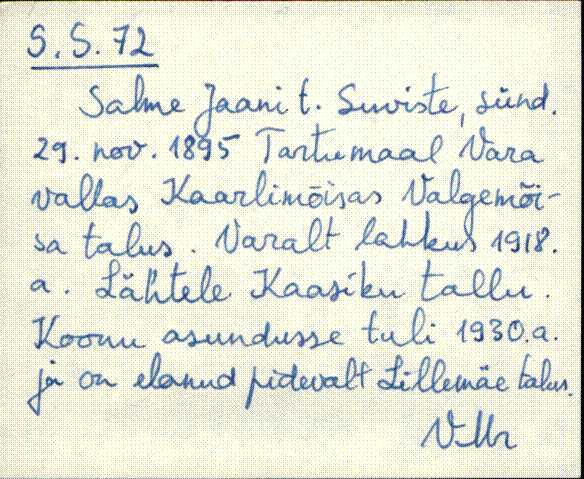 S.S. 72
Salme Jaani t. Suviste, sünd.
29. nov. 1895 Tartumaal Vara
vallas Kaarlimõisas Valgemõi-
sa talus. Varalt lahkus 1918.
a. Lähtele Kaasiku tallu.
Koonu asundusse tuli 1930.a.
ja on elanud pidevalt Lillemäe talus.